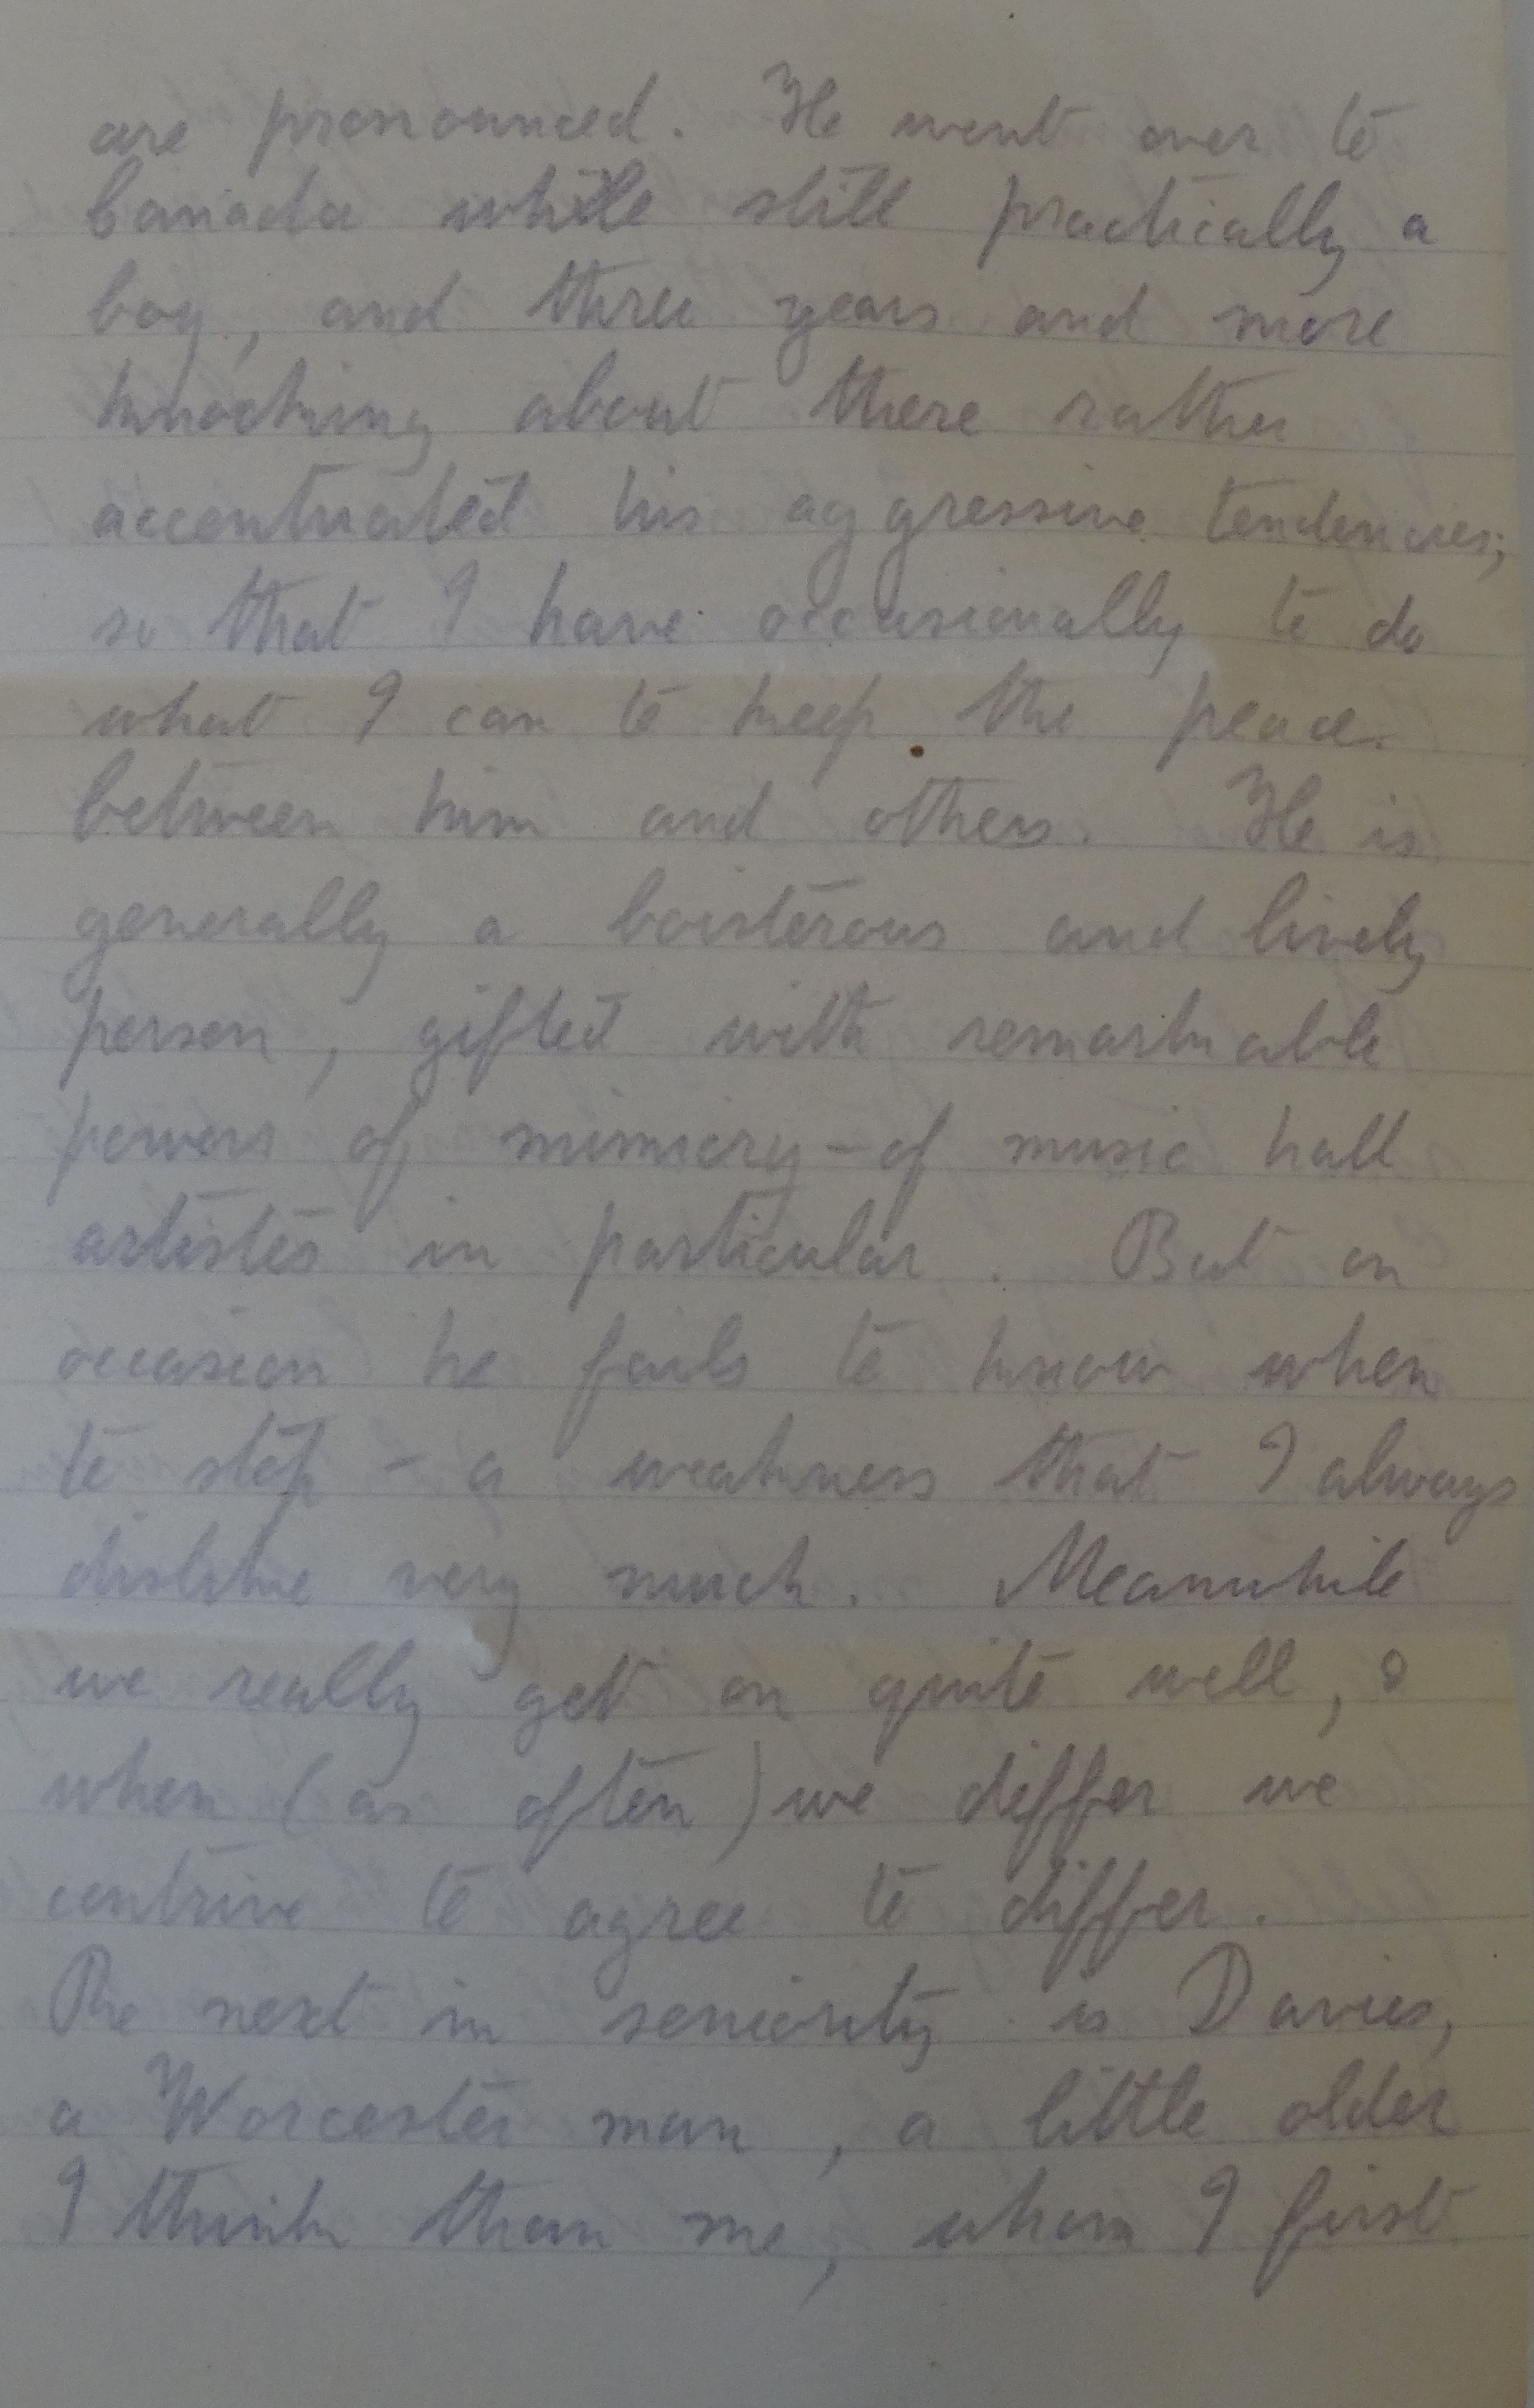 are pronounced. He went over to
Canada while still practically a
boy, and three years and more
knocking about there rather
accentuated his aggressive tendencies;
so that I have occasionally to do
what I can to keep the peace
between him and others. He is
generally a boisterous and lively
person, gifted with remarkable
powers of mimicry - of music hall
artistes in particular. But on
occasion he fails to know when
to stop - a weakness that I always
dislike very much. Meanwhile
we really get on quite well, &
when (as often) we differ we
contrive to agree to differ.
The next in seniority is Davies,
a Worcester man, a little older
I think than me, whom I first